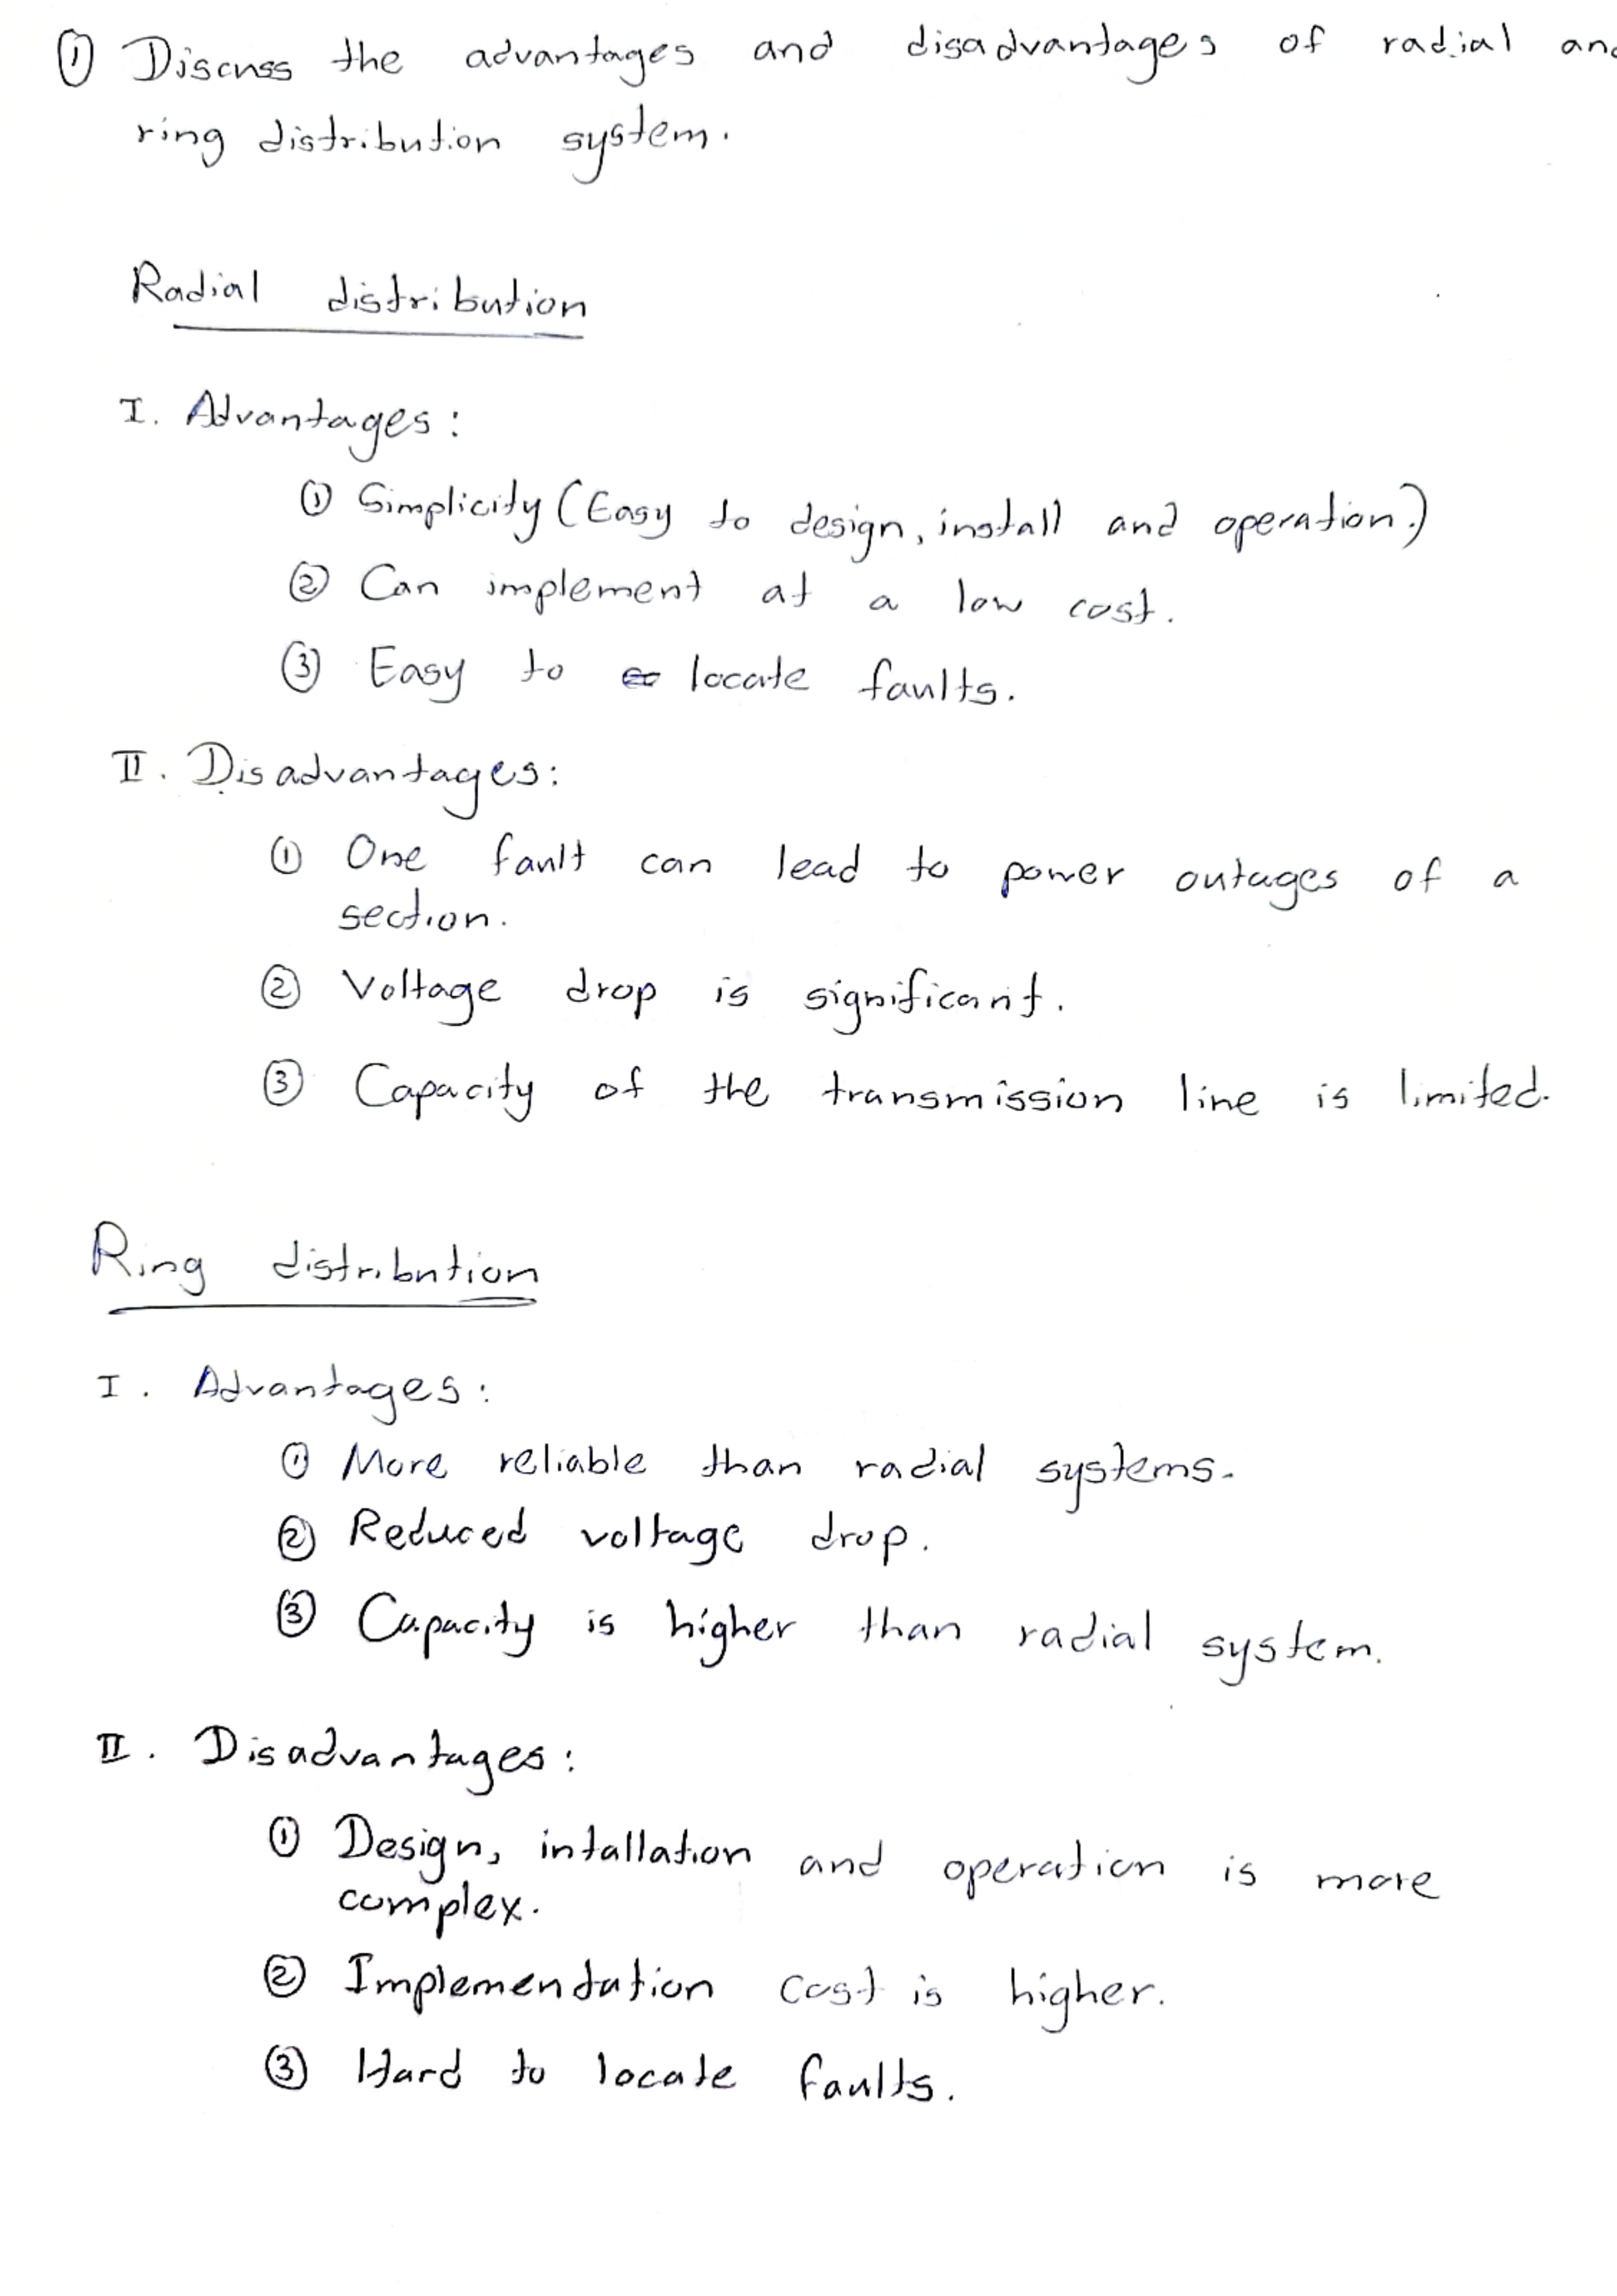 ① Discuss the advantages and disadvantages of radial and
ring distribution system.
Radial distribution
I. Advantages:
① Simplicity (Easy to design, install and operation.)
② Can implement at a low cost.
③ Easy to locate faults.
II. Disadvantages:
① One fault can lead to power outages of a
section.
② Voltage drop is significant.
③ Capacity of the transmission line is limited.
Ring distribution
I. Advantages:
① More reliable than radial systems.
② Reduced voltage drop.
③ Capacity is higher than radial system.
II. Disadvantages:
① Design, intallation and operation is more
complex.
② Implementation cost is higher.
③ Hard to locate faults.